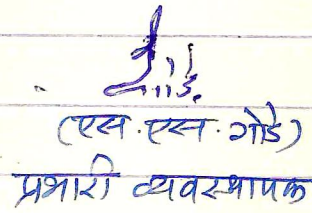 (एस. एस. गौडे)
प्रभारी व्यवस्थापक